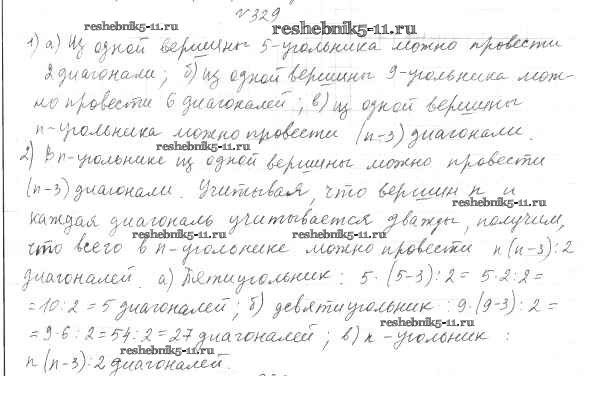 №329
reshebnik5-11.ru reshebnik5-11.ru
1) а) Из одной вершины 5-угольника можно провести
2 диагонали; б) из одной вершины 9-угольника мож-
но провести 6 диагоналей; в) из одной вершины
n-угольника можно провести (n-3) диагонали.
2) В n-угольнике из одной вершины можно провести
(n-3) диагонали. Учитывая, что вершин n и
reshebnik5-11.ru
каждая диагональ учитывается дважды, получим,
reshebnik5-11.ru reshebnik5-11.ru
что всего в n-угольнике можно провести n(n-3):2
диагоналей. а) Пятиугольник: 5·(5-3):2=5·2:2=
=10:2=5 диагоналей; б) девятиугольник: 9·(9-3):2=
reshebnik5-11.ru
=9·6:2=54:2=27 диагоналей; в) n-угольник:
reshebnik5-11.ru
n(n-3):2 диагоналей.